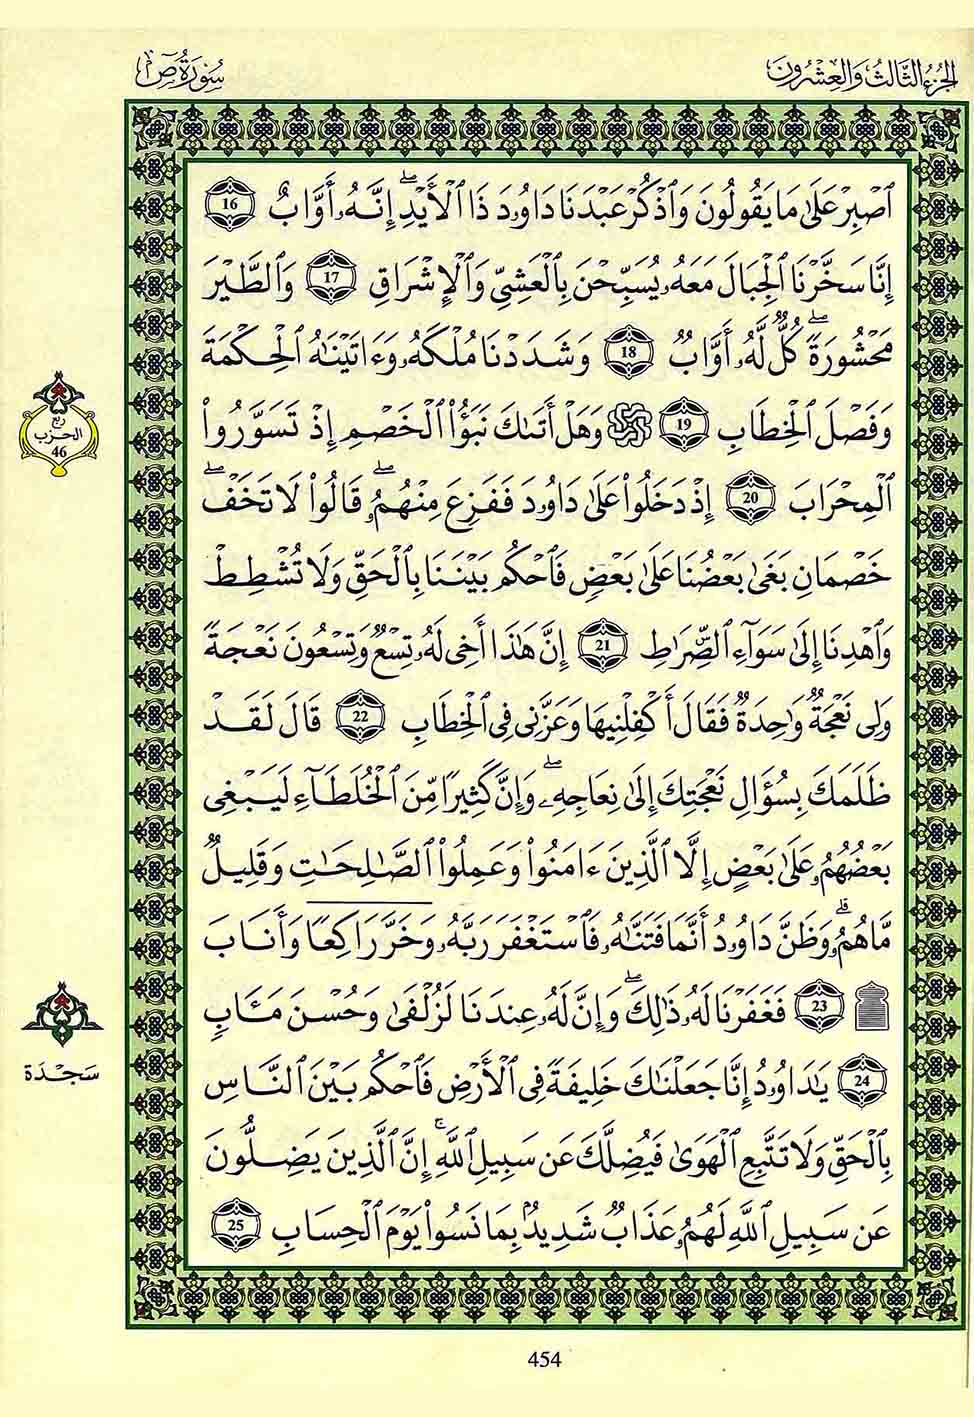 الجزء الثالث والعشرون
سورة ص
ٱصْبِرْ عَلَىٰ مَا يَقُولُونَ وَٱذْكُرْ عَبْدَنَا دَاوُۥدَ ذَا ٱلْأَيْدِۖ إِنَّهُۥٓ أَوَّابٌ 16
إِنَّا سَخَّرْنَا ٱلْجِبَالَ مَعَهُۥ يُسَبِّحْنَ بِٱلْعَشِيِّ وَٱلْإِشْرَاقِ 17 وَٱلطَّيْرَ
مَحْشُورَةًۖ كُلٌّ لَّهُۥٓ أَوَّابٌ 18 وَشَدَدْنَا مُلْكَهُۥ وَءَاتَيْنَٰهُ ٱلْحِكْمَةَ
وَفَصْلَ ٱلْخِطَابِ 19 ۞ وَهَلْ أَتَىٰكَ نَبَؤُاْ ٱلْخَصْمِ إِذْ تَسَوَّرُواْ
ربع
الحزب
46
ٱلْمِحْرَابَ 20 إِذْ دَخَلُواْ عَلَىٰ دَاوُۥدَ فَفَزِعَ مِنْهُمُۥۖ قَالُواْ لَا تَخَفْۖ
خَصْمَانِ بَغَىٰ بَعْضُنَا عَلَىٰ بَعْضٍ فَٱحْكُم بَيْنَنَا بِٱلْحَقِّ وَلَا تُشْطِطْ
وَٱهْدِنَا إِلَىٰ سَوَآءِ ٱلصِّرَٰطِ 21 إِنَّ هَٰذَا أَخِي لَهُۥ تِسْعٌ وَتِسْعُونَ نَعْجَةً
وَلِي نَعْجَةٌ وَٰحِدَةٌ فَقَالَ أَكْفِلْنِيهَا وَعَزَّنِي فِي ٱلْخِطَابِ 22 قَالَ لَقَدْ
ظَلَمَكَ بِسُؤَالِ نَعْجَتِكَ إِلَىٰ نِعَاجِهِۦۖ وَإِنَّ كَثِيرًا مِّنَ ٱلْخُلَطَآءِ لَيَبْغِي
بَعْضُهُمُۥ عَلَىٰ بَعْضٍ إِلَّا ٱلَّذِينَ ءَامَنُواْ وَعَمِلُواْ ٱلصَّٰلِحَٰتِ وَقَلِيلٌ
مَّا هُمُۥۗ وَظَنَّ دَاوُۥدُ أَنَّمَا فَتَنَّٰهُ فَٱسْتَغْفَرَ رَبَّهُۥ وَخَرَّ رَاكِعًا وَأَنَابَ
۩ 23 فَغَفَرْنَا لَهُۥ ذَٰلِكَۖ وَإِنَّ لَهُۥ عِندَنَا لَزُلْفَىٰ وَحُسْنَ مَـَٔابٍ
سَجْدَة
24 يَٰدَاوُۥدُ إِنَّا جَعَلْنَٰكَ خَلِيفَةً فِي ٱلْأَرْضِ فَٱحْكُم بَيْنَ ٱلنَّاسِ
بِٱلْحَقِّ وَلَا تَتَّبِعِ ٱلْهَوَىٰ فَيُضِلَّكَ عَن سَبِيلِ ٱللَّهِۚ إِنَّ ٱلَّذِينَ يَضِلُّونَ
عَن سَبِيلِ ٱللَّهِ لَهُمُۥ عَذَابٌ شَدِيدٌۢ بِمَا نَسُواْ يَوْمَ ٱلْحِسَابِ 25
454